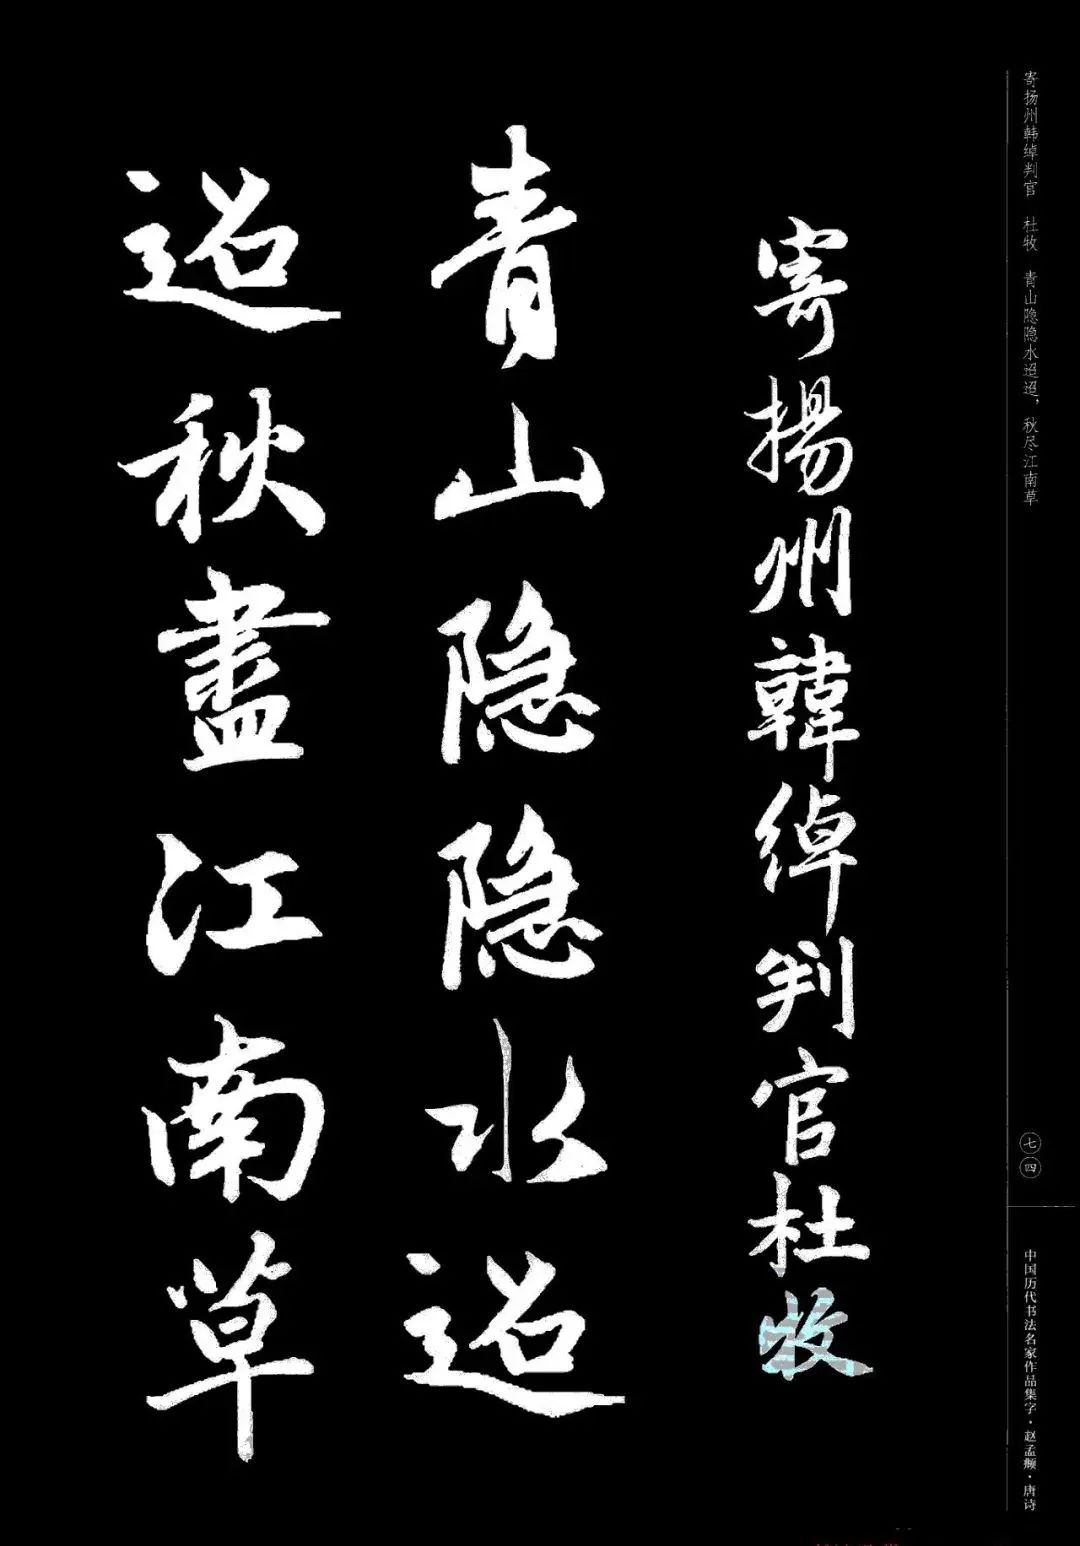 寄扬州韩绰判官 杜牧 青山隐隐水迢迢，秋尽江南草
七四
中国历代书法名家作品集字·赵孟頫·唐诗
寄揚州韓绰判官杜收
青山隐隐水迢
迢秋盡江南草